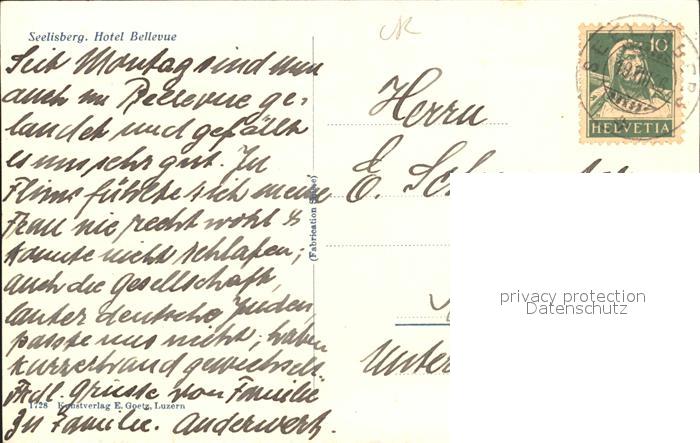 Seelisberg. Hotel Bellevue
Seit Montag sind wir
auch im Bellevue ge-
landet und gefällt
es uns sehr gut. In
Flims fühlte sich meine
Frau nie recht wohl &
konnte nicht schlafen;
auch die Gesellschaft,
lauter deutsche Juden
passte uns nicht; haben
kurzerhand gewechselt.
Frdl. Grüsse von Familie
Zu Familie. Anderwert.
1728 Kunstverlag E. Goetz, Luzern
(Fabrication Suisse)
Herrn
E. Sch
Unter
10
HELVETIA
SEELISBERG
privacy protection
Datenschutz